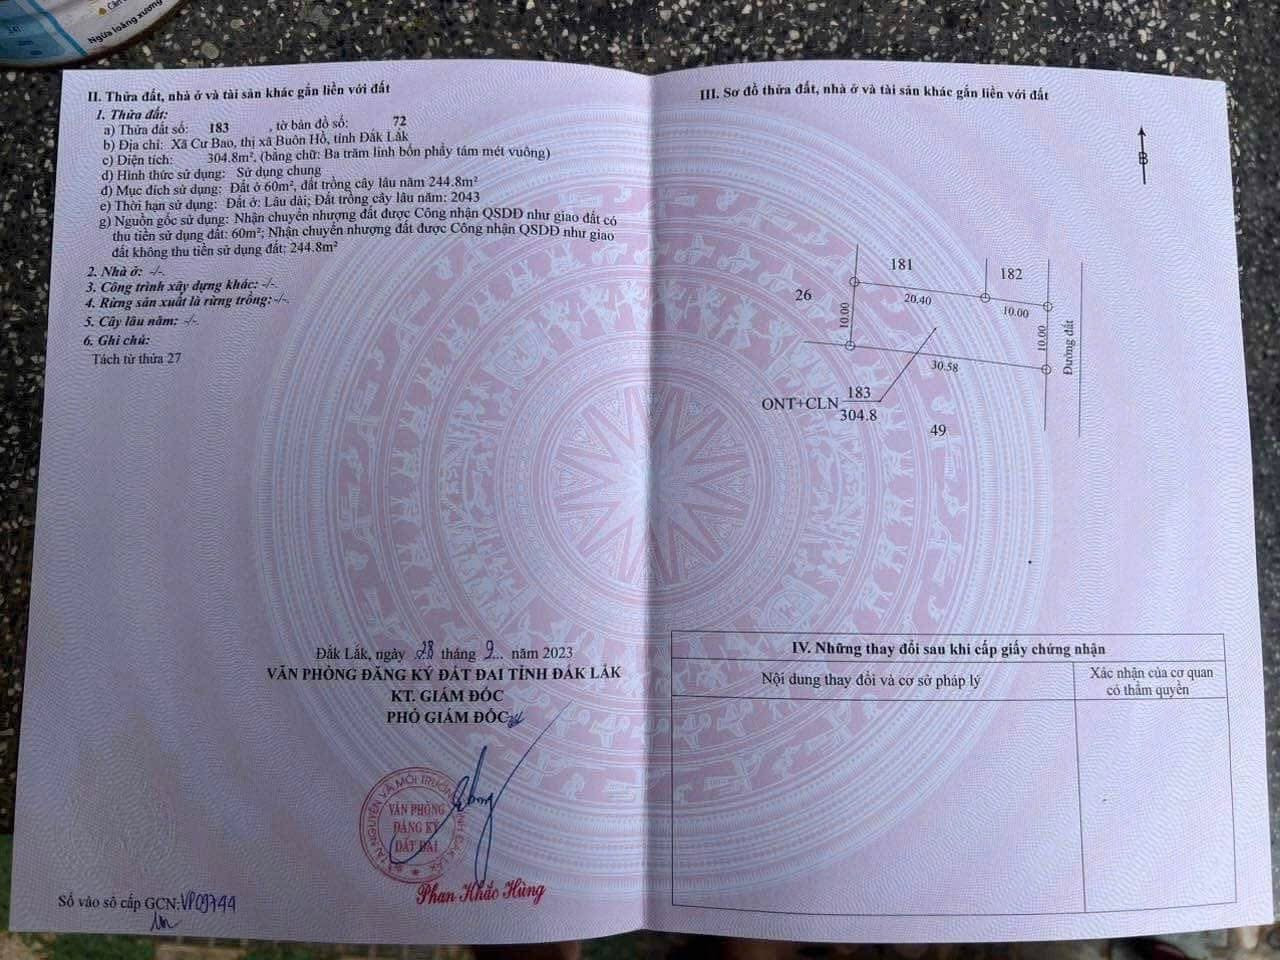 Ngừa loãng xương
II. Thửa đất, nhà ở và tài sản khác gắn liền với đất
1. Thửa đất:
a) Thửa đất số: 183 , tờ bản đồ số: 72
b) Địa chỉ: Xã Cư Bao, thị xã Buôn Hồ, tỉnh Đắk Lắk
c) Diện tích: 304.8m², (bằng chữ: Ba trăm linh bốn phẩy tám mét vuông)
d) Hình thức sử dụng: Sử dụng chung
đ) Mục đích sử dụng: Đất ở 60m², đất trồng cây lâu năm 244.8m²
e) Thời hạn sử dụng: Đất ở: Lâu dài; Đất trồng cây lâu năm: 2043
g) Nguồn gốc sử dụng: Nhận chuyển nhượng đất được Công nhận QSDĐ như giao đất có
thu tiền sử dụng đất: 60m²; Nhận chuyển nhượng đất được Công nhận QSDĐ như giao
đất không thu tiền sử dụng đất: 244.8m²
2. Nhà ở: -/-.
3. Công trình xây dựng khác: -/-.
4. Rừng sản xuất là rừng trồng: -/-.
5. Cây lâu năm: -/-.
6. Ghi chú:
Tách từ thửa 27
Đắk Lắk, ngày 28 tháng 9 năm 2023
VĂN PHÒNG ĐĂNG KÝ ĐẤT ĐAI TỈNH ĐẮK LẮK
KT. GIÁM ĐỐC
PHÓ GIÁM ĐỐC
VĂN PHÒNG
ĐĂNG KÝ
ĐẤT ĐAI
Phan Khắc Hùng
Số vào sổ cấp GCN: VP09744
III. Sơ đồ thửa đất, nhà ở và tài sản khác gắn liền với đất
B
181
182
26
20.40
10.00
10.00
10.00
Đường đất
30.58
ONT+CLN 183
304.8
49
IV. Những thay đổi sau khi cấp giấy chứng nhận
Nội dung thay đổi và cơ sở pháp lý
Xác nhận của cơ quan
có thẩm quyền